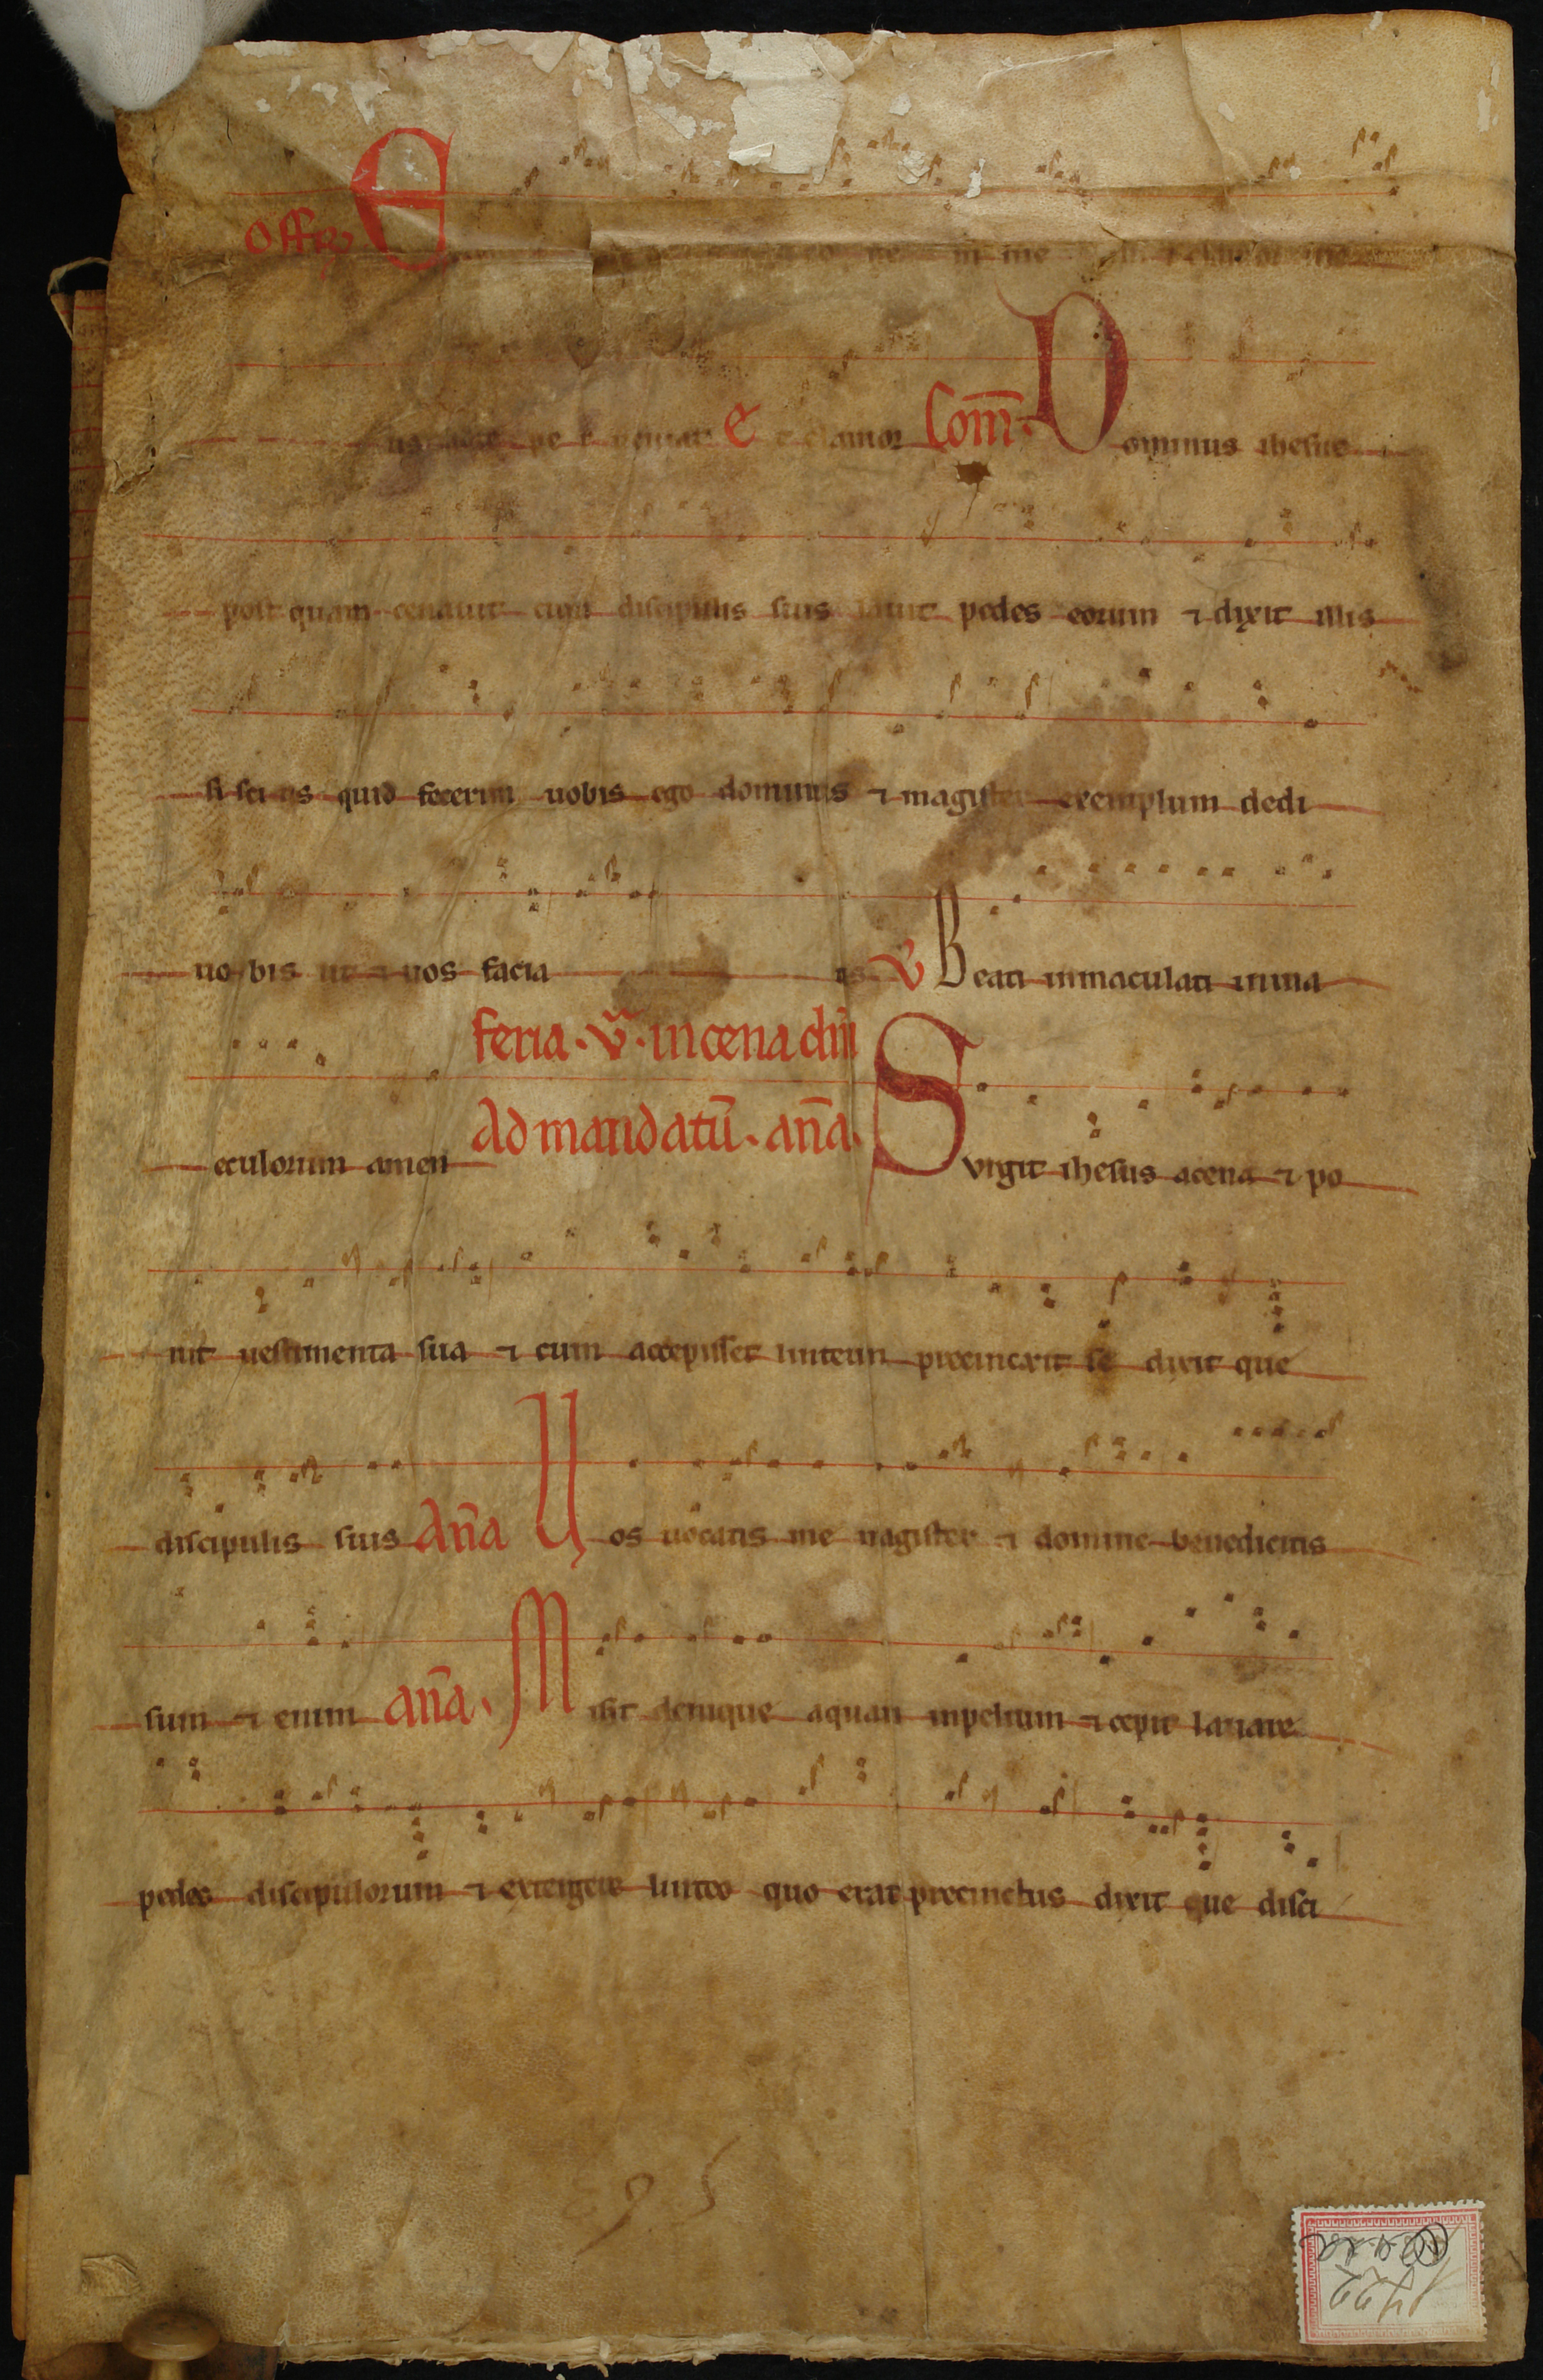 Offr E in me clamor me
us te pe r ueniat Et clamor Com̄ Dominus ihesus
post quam cenauit cum discipulis suis lauit pedes eorum ⁊ dixit illis
si sci tis quid fecerim uobis ego dominus ⁊ magister exemplum dedi
uo bis ut ⁊ uos facia tis V Beati inmaculati inuia
feria · v̄ · incena dn̄i
eculorum amen Ad mandatū · an̄a · Surgit ihesus acena ⁊ po
nit uestimenta sua ⁊ cum accepisset linteum precincxit se dixit que
discipulis suis An̄a Uos uocatis me magister ⁊ domine benedicitis
sum ⁊ enim an̄a · Misit denique aquam inpeluim ⁊ cepit lauare
pedes discipulorum ⁊ extergere linteo quo erat precinctus dixit que disci